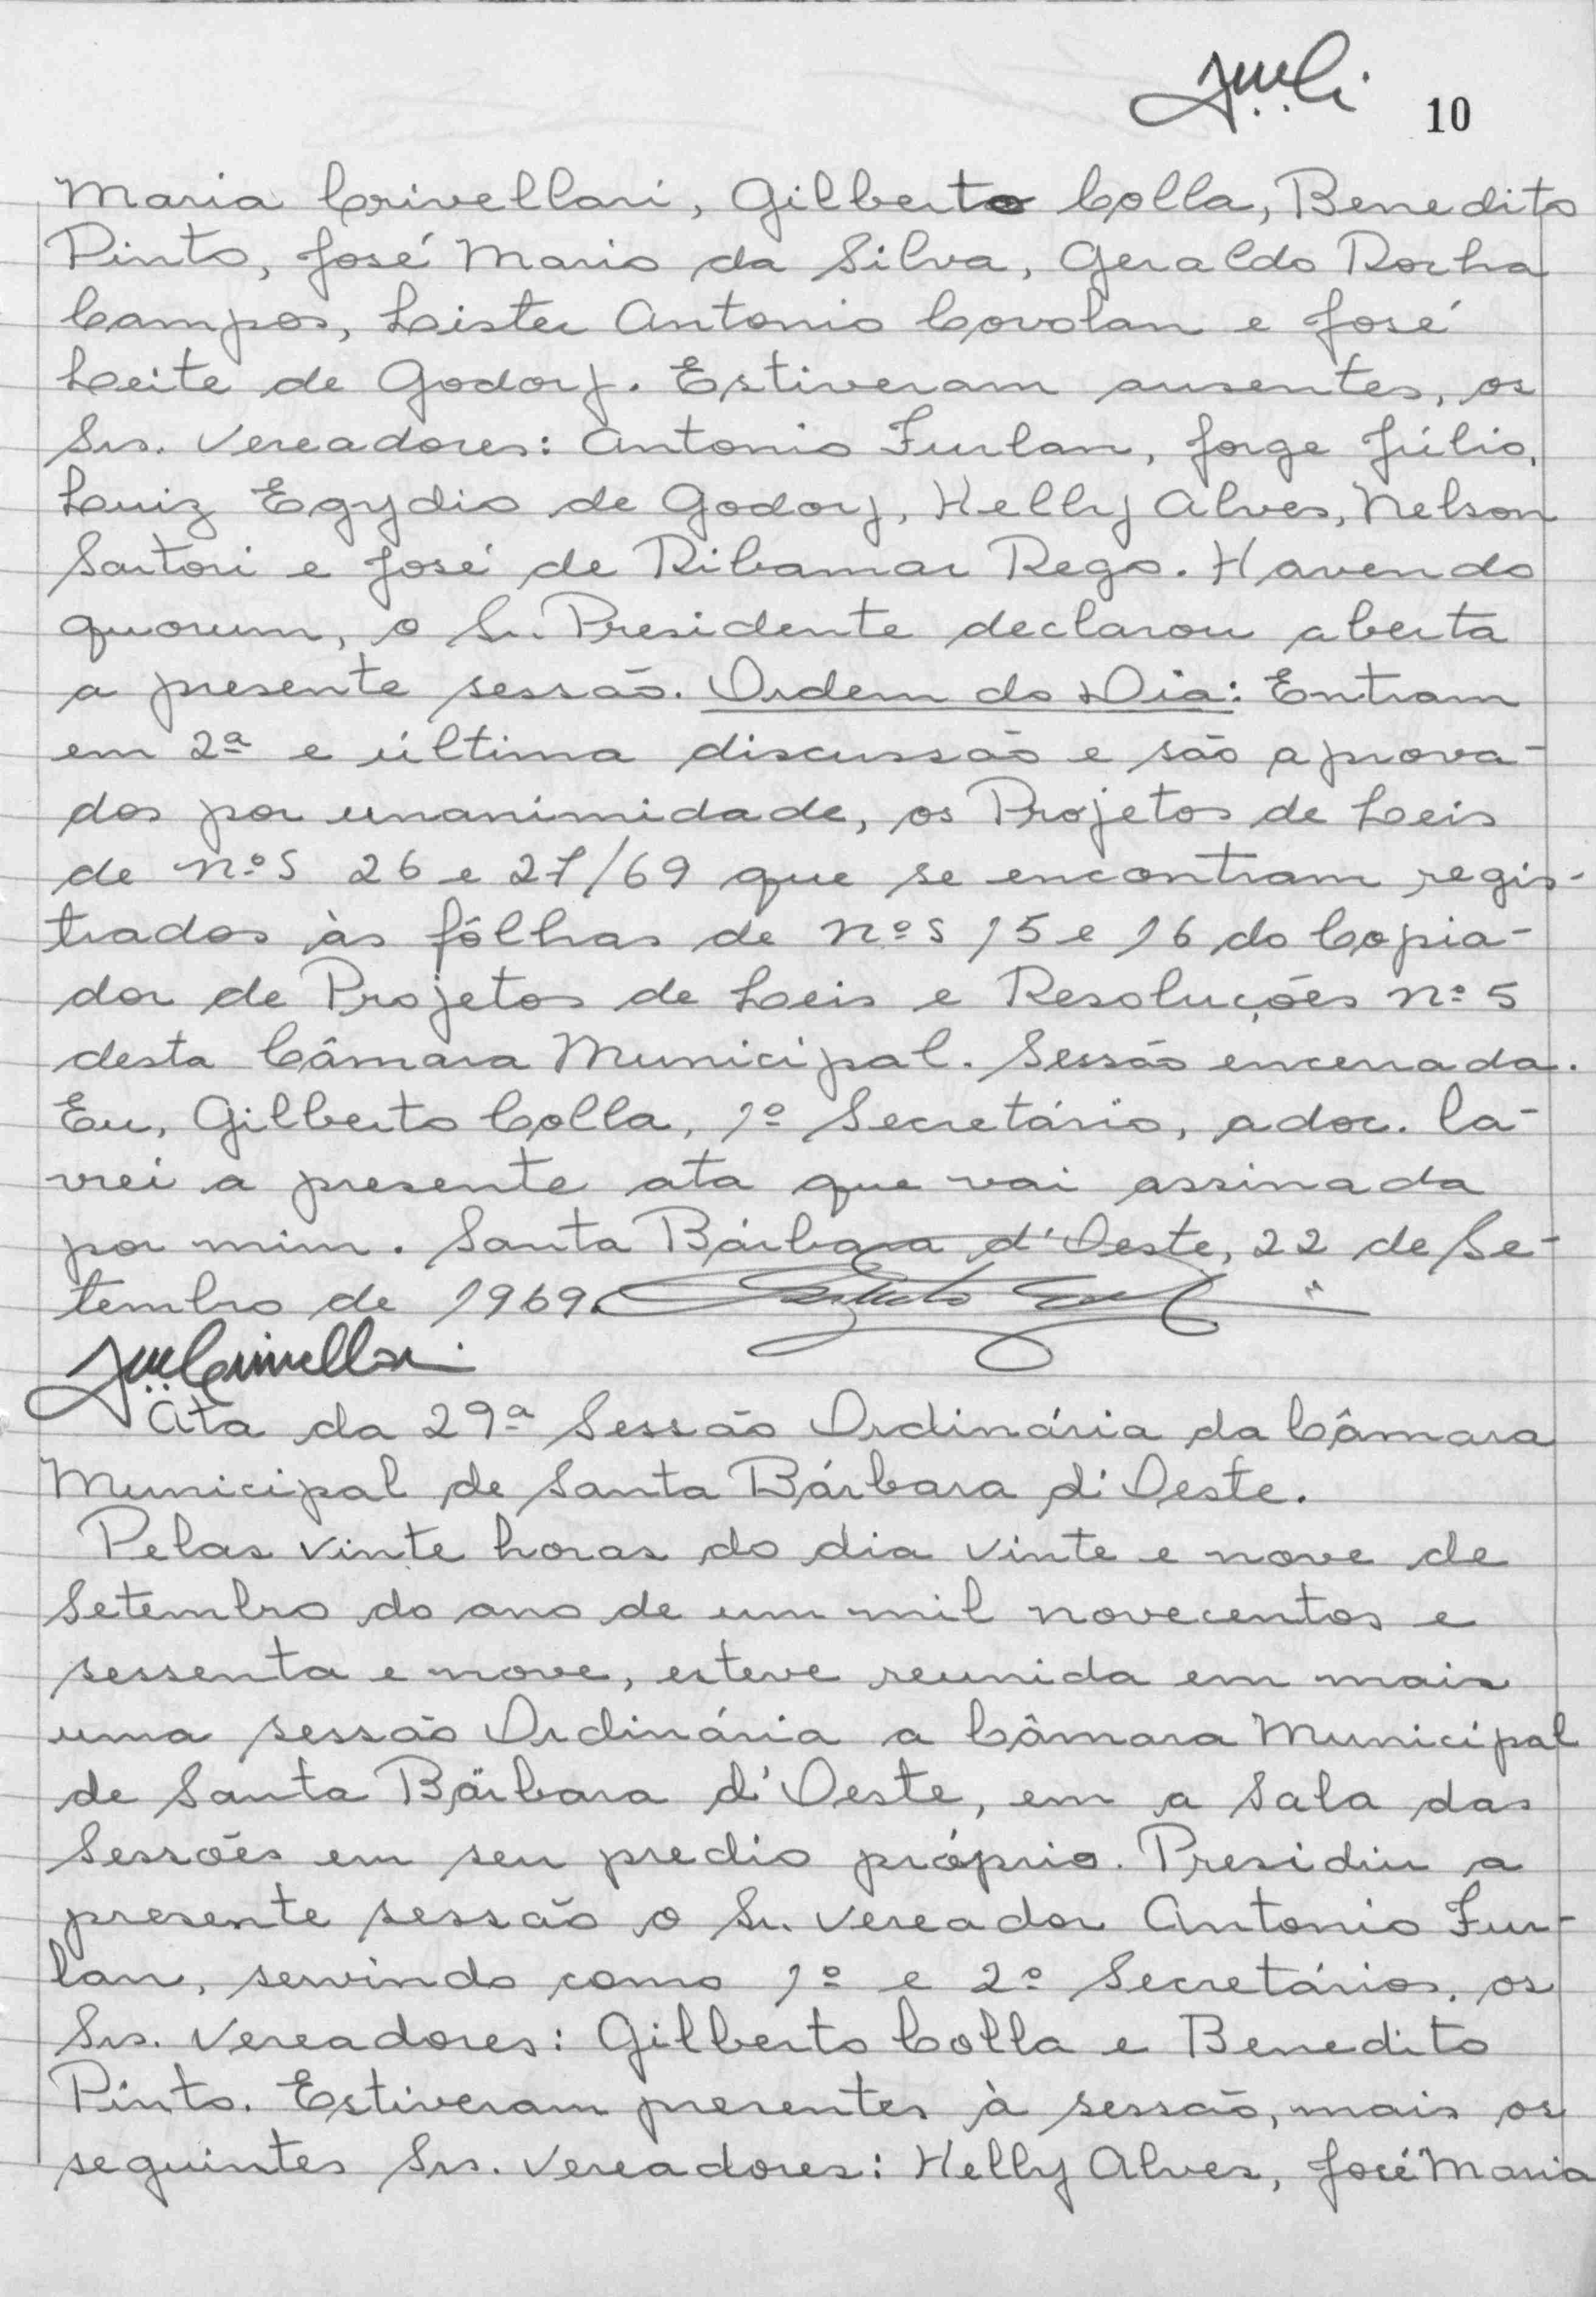 10
Maria Crivellari, Gilberto Colla, Benedito
Pinto, José Maria da Silva, Geraldo Rocha
Campos, Leister Antonio Covolan e José
Leite de Godoy. Estiveram ausentes, os
Srs. Vereadores: Antonio Furlan, Jorge Júlio,
Luiz Egydio de Godoy, Helly Alves, Nelson
Sartori e José de Ribamar Rego. Havendo
quorum, o Sr. Presidente declarou aberta
a presente sessão. Ordem do Dia: Entram
em 2ª e última discussão e são aprova-
dos por unanimidade, os Projetos de Leis
de nºs 26 e 27/69 que se encontram regis-
trados às fôlhas de nºs 15 e 16 do Copia-
dor de Projetos de Leis e Resoluções nº 5
desta Câmara Municipal. Sessão encerrada.
Eu, Gilberto Colla, 1º Secretário, adoc. la-
vrei a presente ata que vai assinada
por mim. Santa Bárbara d'Oeste, 22 de Se-
tembro de 1969.
Ata da 29ª Sessão Ordinária da Câmara
Municipal de Santa Bárbara d'Oeste.
Pelas vinte horas do dia vinte e nove de
Setembro do ano de um mil novecentos e
sessenta e nove, esteve reunida em mais
uma sessão Ordinária a Câmara Municipal
de Santa Bárbara d'Oeste, em a Sala das
Sessões em seu predio próprio. Presidiu a
presente sessão o Sr. Vereador Antonio Fur-
lan, servindo como 1º e 2º Secretários, os
Srs. Vereadores: Gilberto Colla e Benedito
Pinto. Estiveram presentes à sessão, mais os
seguintes Srs. Vereadores: Helly Alves, José Maria